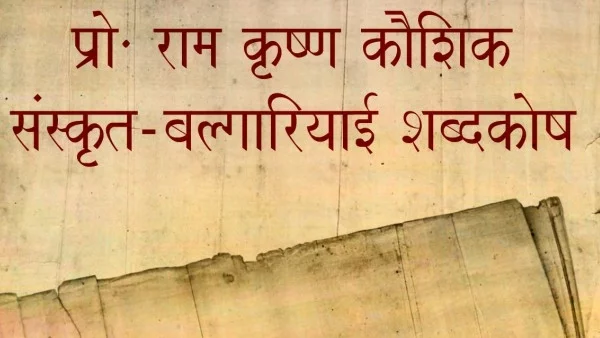 प्रो· राम कृष्ण कौशिक
संस्कृत-बल्गारियाई शब्दकोष